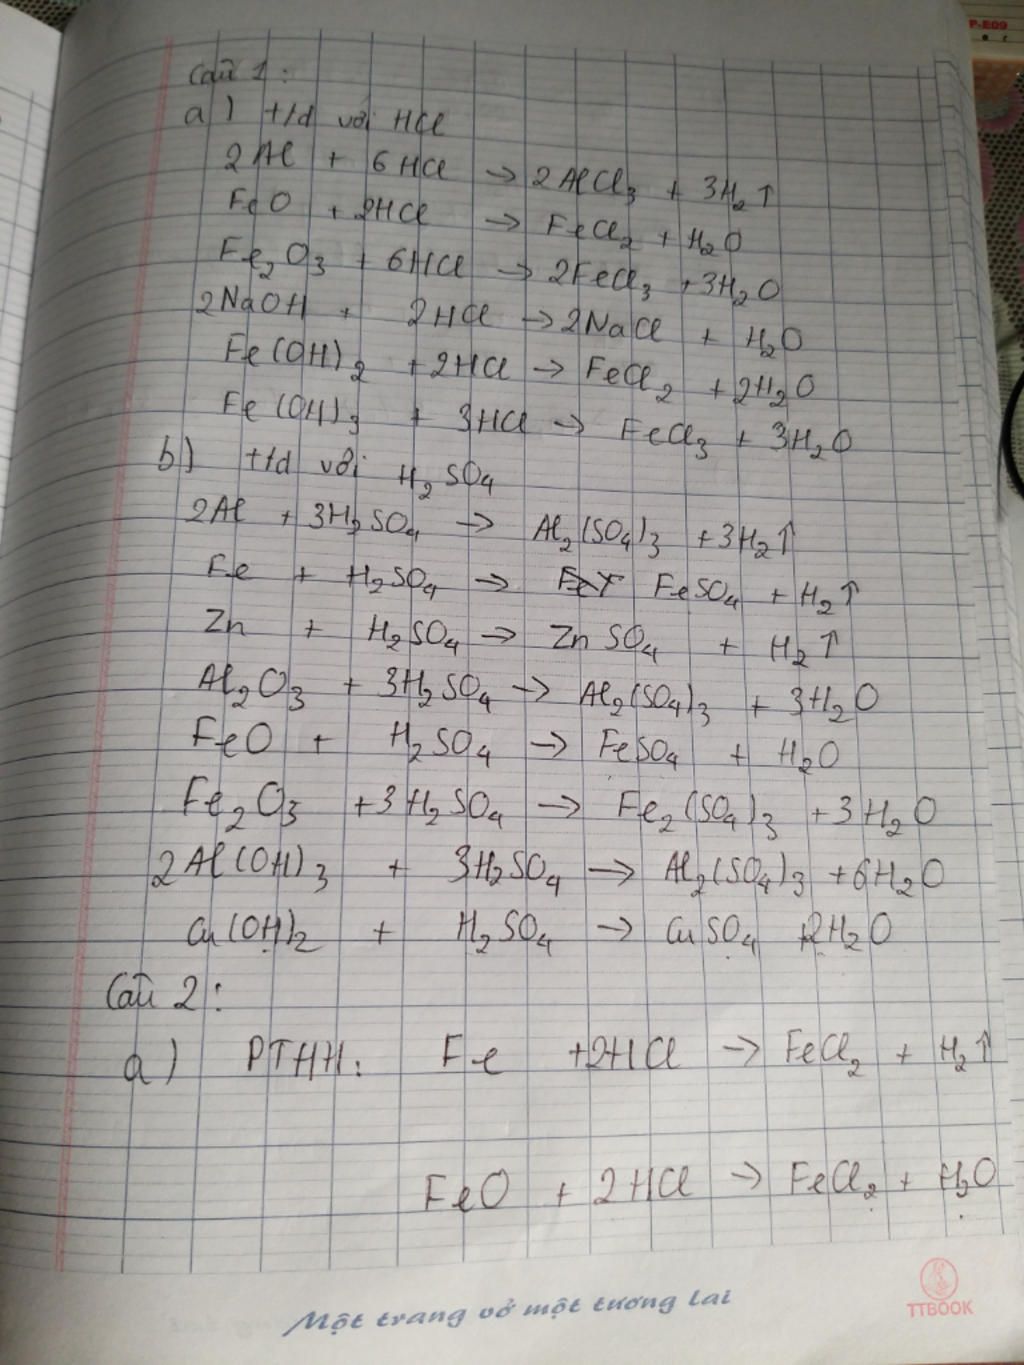 P-E09
Câu 1:
a) t/d với HCl
2Al + 6HCl → 2AlCl₃ + 3H₂↑
FeO + 2HCl → FeCl₂ + H₂O
Fe₂O₃ + 6HCl → 2FeCl₃ + 3H₂O
2NaOH + 2HCl → 2NaCl + H₂O
Fe(OH)₂ + 2HCl → FeCl₂ + 2H₂O
Fe(OH)₃ + 3HCl → FeCl₃ + 3H₂O
b) t/d với H₂SO₄
2Al + 3H₂SO₄ → Al₂(SO₄)₃ + 3H₂↑
Fe + H₂SO₄ → FeSO₄ + H₂↑
Zn + H₂SO₄ → ZnSO₄ + H₂↑
Al₂O₃ + 3H₂SO₄ → Al₂(SO₄)₃ + 3H₂O
FeO + H₂SO₄ → FeSO₄ + H₂O
Fe₂O₃ + 3H₂SO₄ → Fe₂(SO₄)₃ + 3H₂O
2Al(OH)₃ + 3H₂SO₄ → Al₂(SO₄)₃ + 6H₂O
Cu(OH)₂ + H₂SO₄ → CuSO₄ + 2H₂O
Câu 2:
a) PTHH: Fe + 2HCl → FeCl₂ + H₂↑
FeO + 2HCl → FeCl₂ + H₂O
Một trang vở một tương lai
TTBOOK